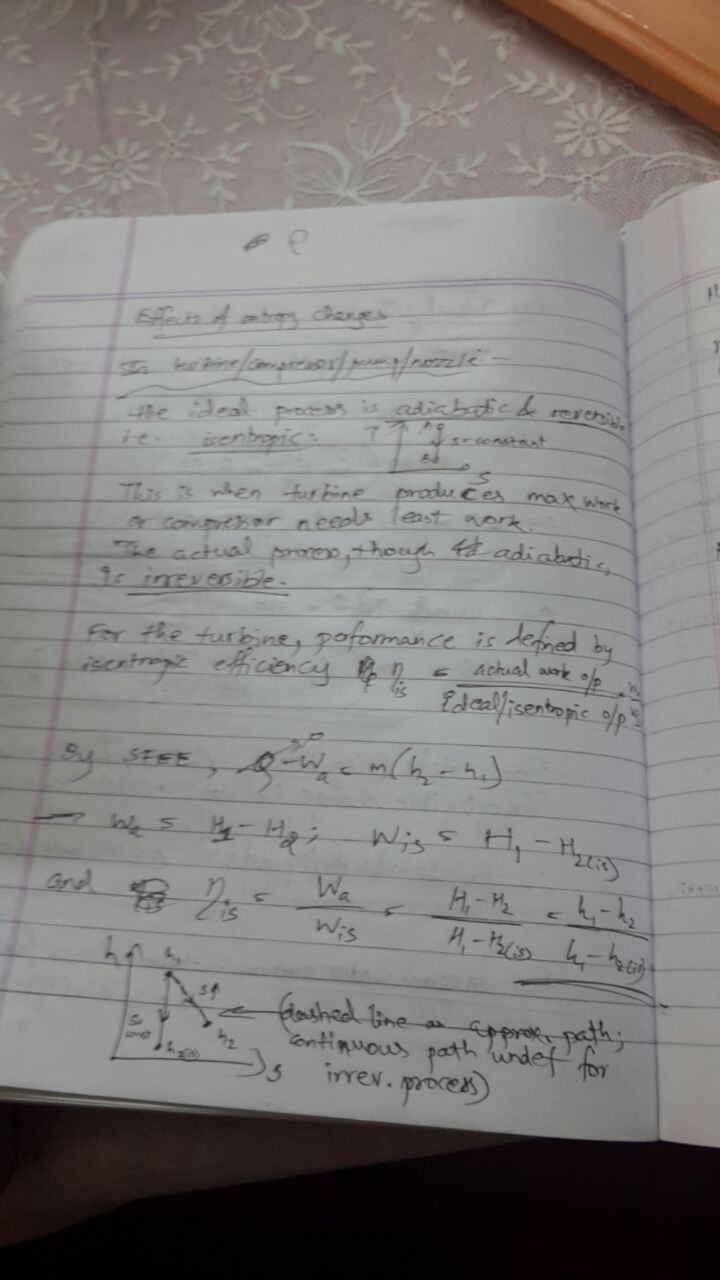 Effects of entropy changes
In turbine/compressor/pump/nozzle:-
the ideal process is adiabatic & reversible
i.e. isentropic:
T
s=constant
S
This is when turbine produces max work
or compressor needs least work.
The actual process, though adiabatic,
is irreversible.
For the turbine, paformance is defined by
isentropic efficiency η_is = actual work o/p
Ideal/isentropic o/p
By SFEE, Q-W_a = m(h_2 - h_1)
→ W_a = H_1 - H_2; W_is = H_1 - H_2(is)
and η_is = W_a / W_is = H_1-H_2 / H_1-H_2(is) = h_1-h_2 / h_1-h_2(is)
h
h_1
s↑
h_2
h_2(is)
S
(dashed line as approx. path;
continuous path undef for
irrev. process)